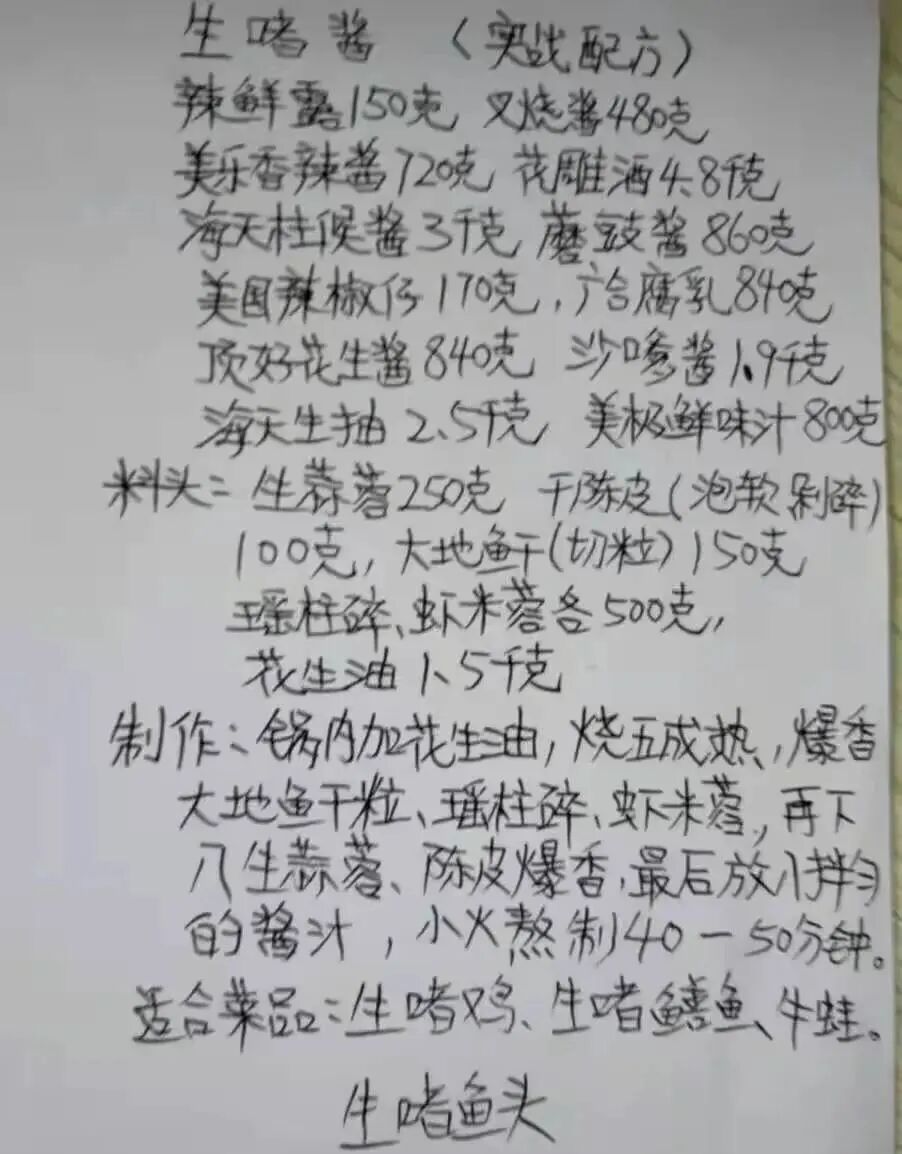 生啫酱 （实战配方）
辣鲜露150克 叉烧酱480克
美乐香辣酱720克 花雕酒4.8千克
海天柱侯酱3千克 蘑豉酱860克
美国辣椒仔170克，广合腐乳840克
顶好花生酱840克 沙嗲酱1.9千克
海天生抽2.5千克 美极鲜味汁800克
料头：生蒜蓉250克 干陈皮（泡软剁碎）
100克，大地鱼干（切粒）150克
瑶柱碎、虾米蓉各500克，
花生油1.5千克
制作：锅内加花生油，烧五成热，爆香
大地鱼干粒、瑶柱碎、虾米蓉，再下
入生蒜蓉、陈皮爆香，最后放入拌匀
的酱汁，小火熬制40－50分钟。
适合菜品：生啫鸡、生啫鳝鱼、牛蛙。
生啫鱼头